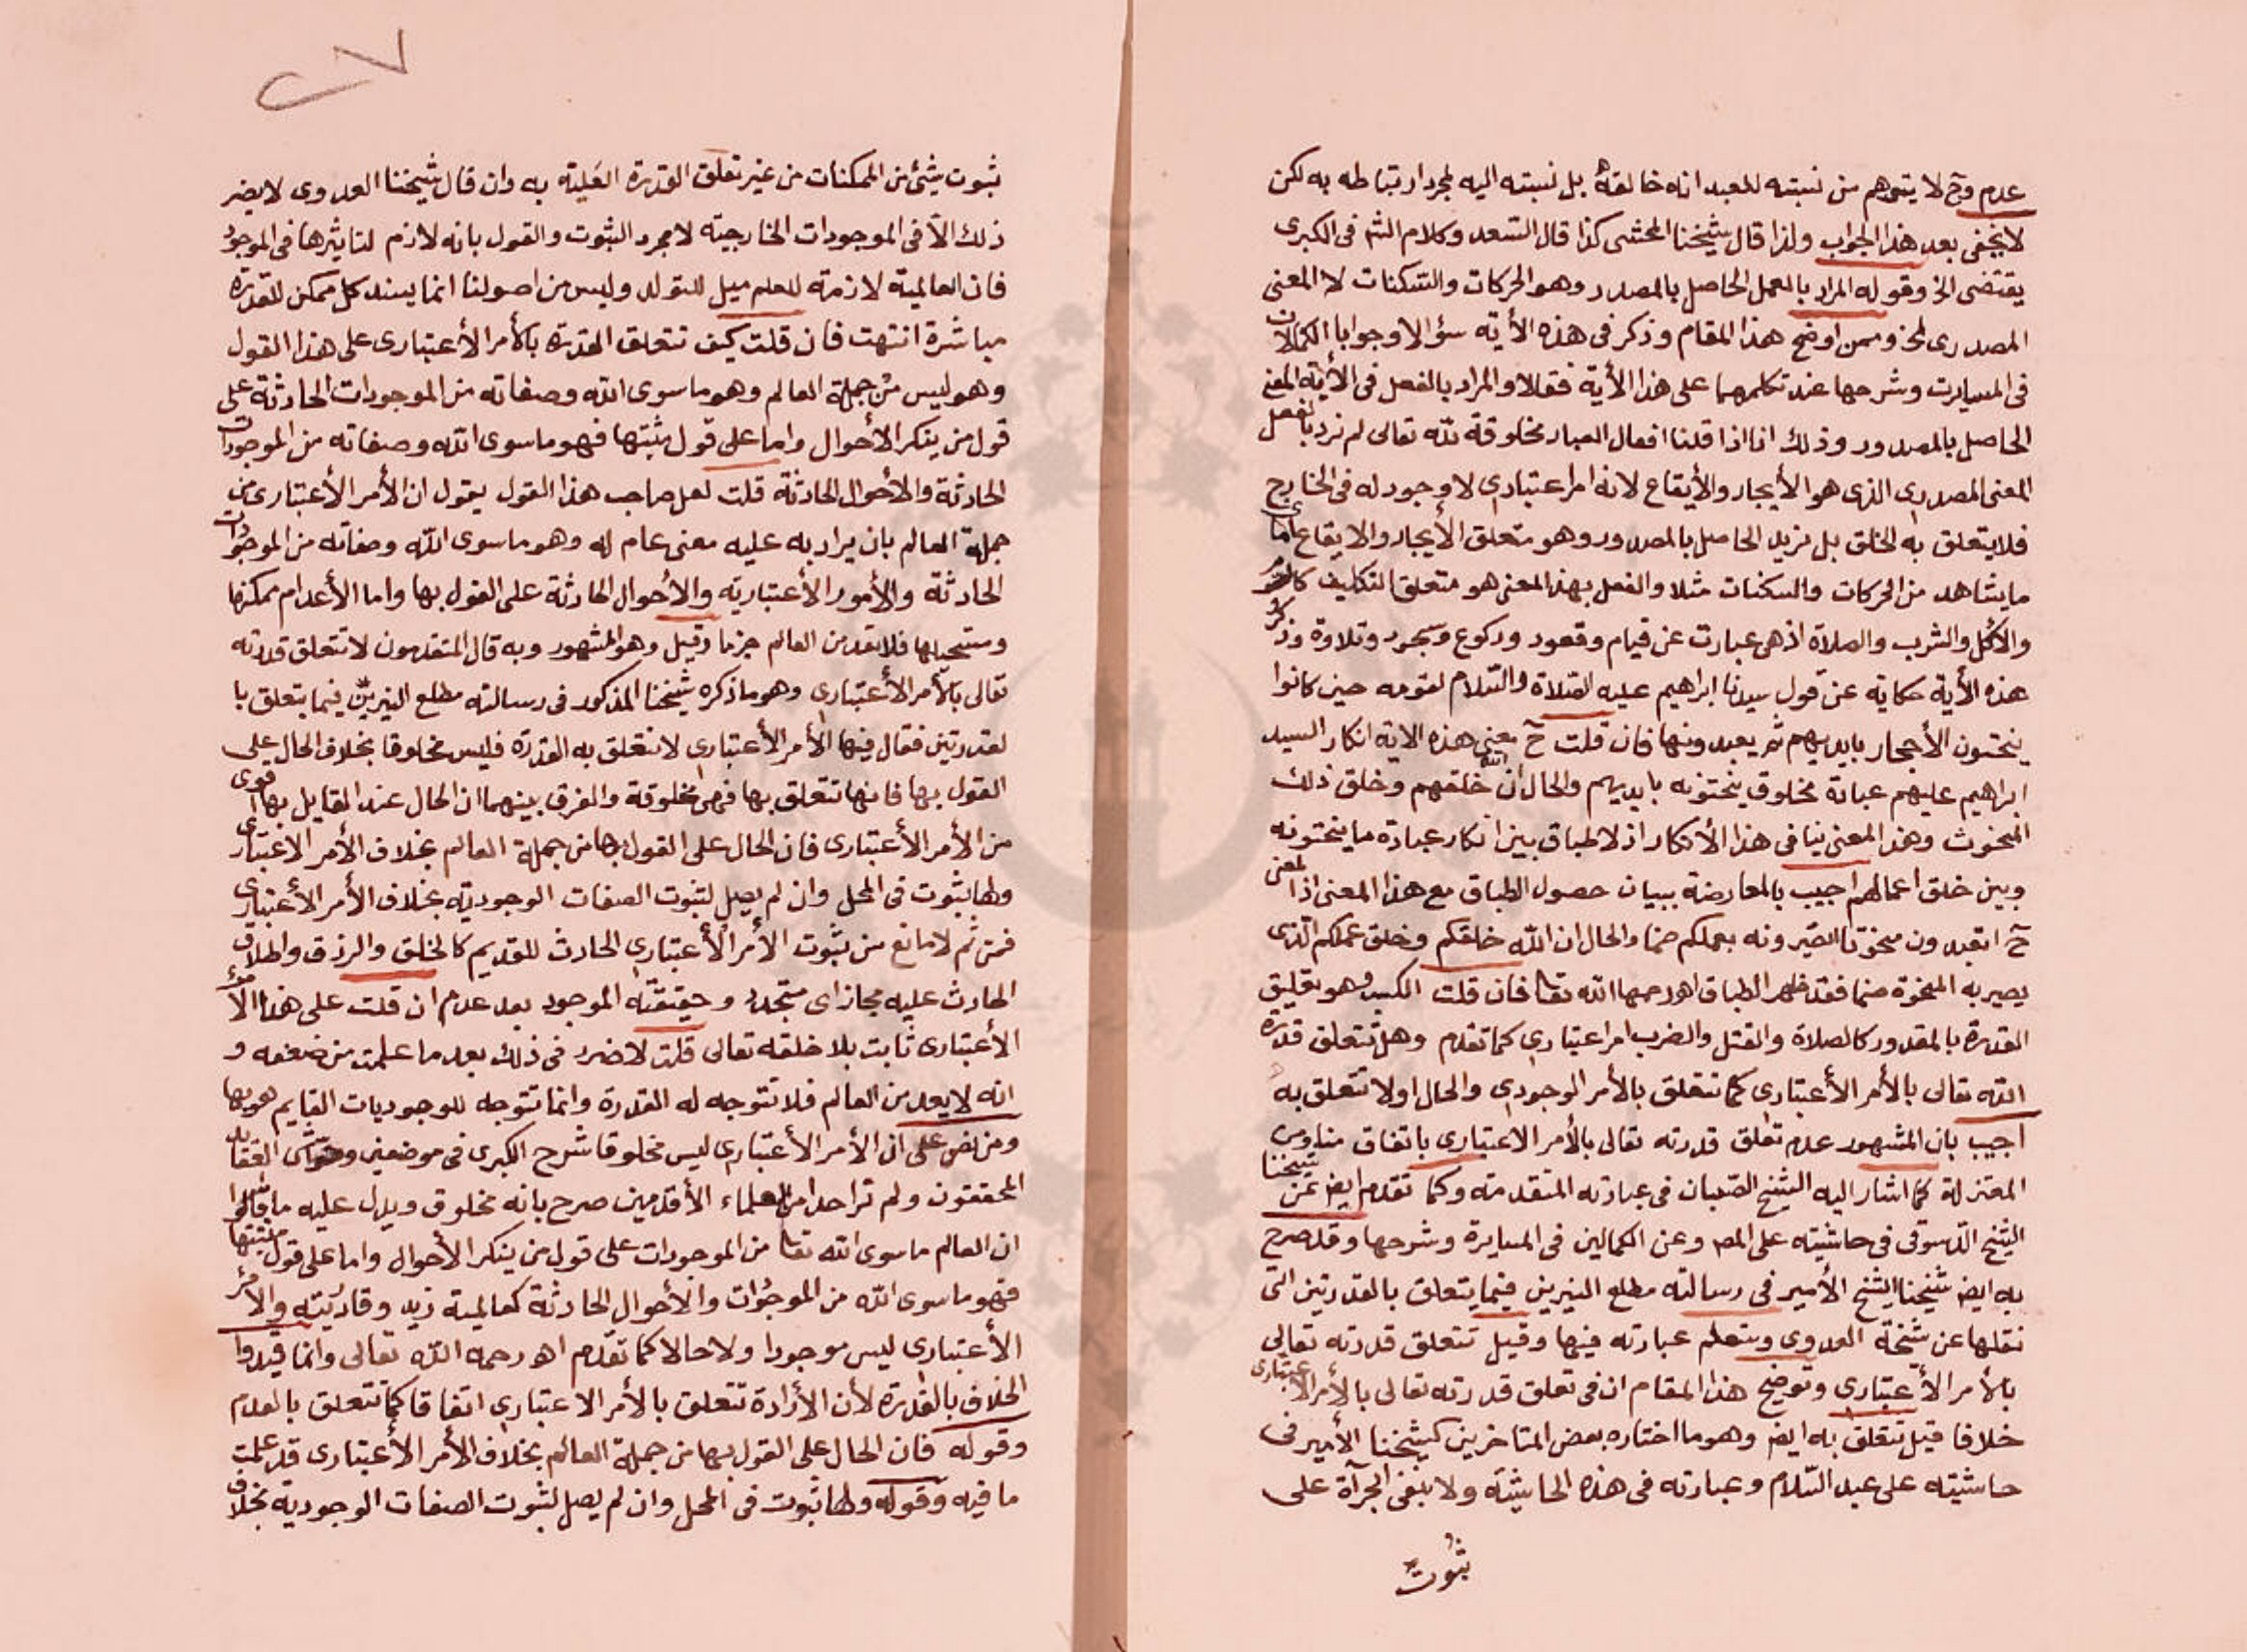 عدم وح لا يتوهم من نسبته للعبد انه خالقه بل نسبته اليه لمجرد ارتباطه به لكن
لا يخفى بعد هذا الجواب ولذا قال شيخنا المحشى كذا قال السعد وكلام الشم فى الكبرى
يقتضى الخ وقوله المراد بالعمل الحاصل بالمصدر وهو الحركات والسكنات لا المعنى
المصدرى الخ وممن اوضح هذا المقام وذكر فى هذه الأية سؤالا وجوابا الكمالان
فى المسايرت وشرحها عند تكلمهما على هذا الأية فقالا والمراد بالفعل فى الأية المعنى
الحاصل بالمصدور وذلك انا اذا قلنا افعال العباد مخلوقة لله تعالى لم نرد بالفعل
المعنى المصدرى الذى هو الأيجاد والأيقاع لانه امر اعتبارى لا وجود له فى الخارج
فلا يتعلق به الخلق بل نريد الحاصل بالمصدور وهو متعلق الأيجاد والايقاع اى ما
ما يشاهد من الحركات والسكنات مثلا والفعل بهذ المعنى هو متعلق التكليف كالصوم
والاكل والشرب والصلاة اذ هى عبارت عن قيام وقعود وركوع وسجود وتلاوة وذكر
هذه الأية حكاية عن قول سيدنا ابراهيم عليه الصلاة والسلام لقومه حين كانوا
ينحتون الأحجار بايديهم ثم يعبدونها فان قلت ح معنى هذه الاية انكار السيد
ابراهيم عليهم عبادة مخلوق ينحتونه بايديهم والحال ان الله خلقهم وخلق ذلك
المنحوت وهذ المعنى ينافى هذا الأنكار اذ لا طباق بين انكار عبادة ما ينحتونه
وبين خلق اعمالهم اجيب بالمعارضة ببيان حصول الطباق مع هذا المعنى اذ المعنى
ح اتعبدون منحوتا تصيرونه بعملكم صنما والحال ان الله خلقكم وخلق عملكم الذى
يصير به المنحوة صنما فقد ظهر الطباق اهـ رحمهما الله تعا فان قلت الكسب وهو تعليق
القدرة بالمقدور كالصلاة والقتل والضرب امرا عتبارى كما تقدم وهل تتعلق قدرة
الله تعالى بالأمر الأعتبارى كما تتعلق بالأمر الوجودى والحال اولا تتعلق به
اجيب بان المشهور عدم تعلق قدرته تعالى بالأمر الاعتبارى باتفاق منا ومن
المعتزلة كما اشار اليه الشيخ الصبان فى عبارته المتقدمة وكما تقدم ايضا عن شيخنا
الشيخ الدسوقى فى حاشيته على المص وعن الكمالين فى المسايرة وشرحها وقد صرح
به ايض شيخنا الشيخ الأمير فى رسالته مطلع النيرين فيما يتعلق بالقدرتين التى
نقلها عن شيخة العدوى وستعلم عبارته فيها وقيل تتعلق قدرته تعالى
بالأمر الأعتبارى وتوضيح هذا المقام ان فى تعلق قدرته تعالى بالأمر الاعتبارى
خلافا قيل تتعلق به ايض وهو ما اختاره بعض المتاخرين كشيخنا الأمير فى
حاشيته على عبد السلام وعبارته فى هذه الحاشية ولا ينبغى الجرآة على
ثبوت
٢٧
ثبوت شئ من الممكنات من غير تعلق القدرة العلية به وان قال شيخنا العدوى لا يضر
ذلك الا فى الموجودات الخارجية لا مجرد الثبوت والقول بانه لازم لتاثيرها فى الموجود
فان العالمية لازمة للعلم ميل للتولد وليس من اصولنا انما يسند كل ممكن للقدرة
مباشرة انتهت فان قلت كيف تتعلق القدرة بالأمر الأعتبارى على هذا القول
وهو ليس من جملة العالم وهو ما سوى الله وصفاته من الموجودات الحادثة على
قول من ينكر الأحوال واما على قول مثبتها فهو ما سوى الله وصفاته من الموجودات
الحادثة والأحوال الحادثة قلت لعل صاحب هذا القول يقول ان الأمر الأعتبارى من
جملة العالم بان يراد به عليه معنى عام له وهو ما سوى الله وصفاته من الموجودات
الحادثة والأمور الأعتبارية والأحوال الحادثة على القول بها واما الأعدام ممكنها
ومستحيلها فلا تعد من العالم جزما وقيل وهو المشهور وبه قال المتقدمون لا تتعلق قدرته
تعالى بالأمر الأعتبارى وهو ما ذكره شيخنا المذكور فى رسالته مطلع النيرين فيما يتعلق با
لقدرتين فقال فيها الأمر الأعتبارى لا تتعلق به القدرة فليس مخلوقا بخلاف الحال على
القول بها فانها تتعلق بها فهى مخلوقة والفرق بينهما ان الحال عند القايل بها اقوى
من الأمر الأعتبارى فان الحال على القول بها من جملة العالم بخلاف الأمر الاعتبارى
ولها ثبوت فى المحل وان لم يصل لثبوت الصفات الوجودية بخلاف الأمر الأعتبارى
فمن ثم لا مانع من ثبوت الأمر الأعتبارى الحادث للقديم كالخلق والرزق واطلاق
الحادث عليه مجاز اى متجدد وحقيقته الموجود بعد عدم ان قلت على هذا الأمر
الأعتبارى ثابت بلا خلقه تعالى قلت لا ضرر فى ذلك بعد ما علمت من ضعفه و
انه لا يعد من العالم فلا تتوجه له القدرة وانما تتوجه للوجوديات القايم هو بها
ومن نص على ان الأمر الأعتبارى ليس مخلوقا شرح الكبرى فى موضعين وحواشى العقايد
المحققون ولم تر احدا من العلماء الأقدمين صرح بانه مخلوق ويدل عليه ما قالوا
ان العالم ما سوى الله تعا من الموجودات على قول من ينكر الأحوال واما على قول مثبتها
فهو ما سوى الله من الموجودات والأحوال الحادثة كعالمية زيد وقادريته والأمر
الأعتبارى ليس موجودا ولا حالا كما تقدم اهـ رحمه الله تعالى وانما قيدوا
الخلاف بالقدرة لأن الأرادة تتعلق بالأمر الاعتبارى اتفاقا كما تتعلق بالعدم
وقوله فان الحال على القول بها من جملة العالم بخلاف الأمر الأعتبارى قد علمت
ما فيه وقوله ولها ثبوت فى المحل وان لم يصل لثبوت الصفات الوجودية بخلاف